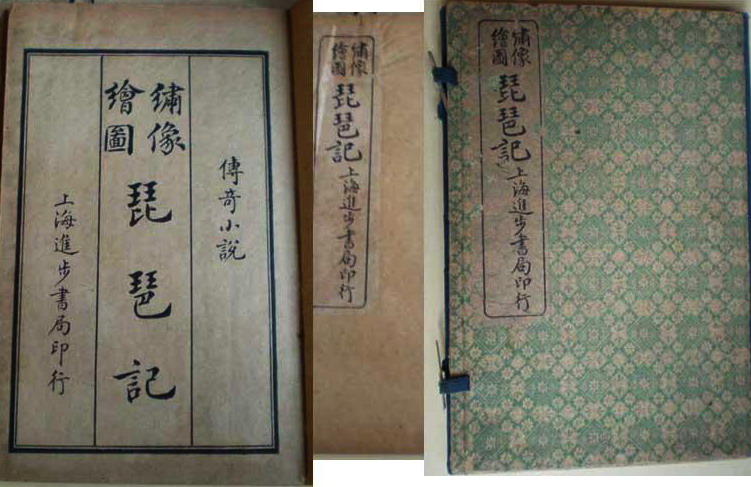 傳奇小說
繡像
繪圖
琵琶記
上海進步書局印行
繡像
繪圖
琵琶記
上海進步書局印行
繡像
繪圖
琵琶記
上海進步書局印行